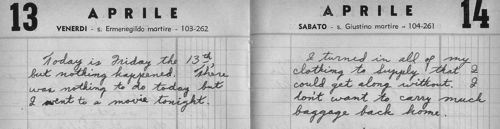 13 APRILE
VENERDI - s. Ermenegildo martire - 103-262
Today is Friday the 13th,
but nothing happened. There
was nothing to do today but
I went to a movie tonight.
APRILE 14
SABATO - s. Giustino martire - 104-261
I turned in all of my
clothing to supply that I
could get along without. I
don't want to carry much
baggage back home.